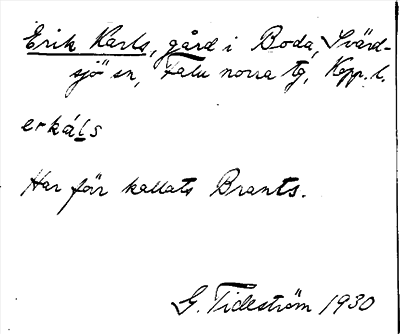 Erik Karls, gård i Boda, Svärd-
sjö sn, Falu norra tg, Kopp. l.
erkáls
Har förr kallats Brants.
G. Tideström 1930